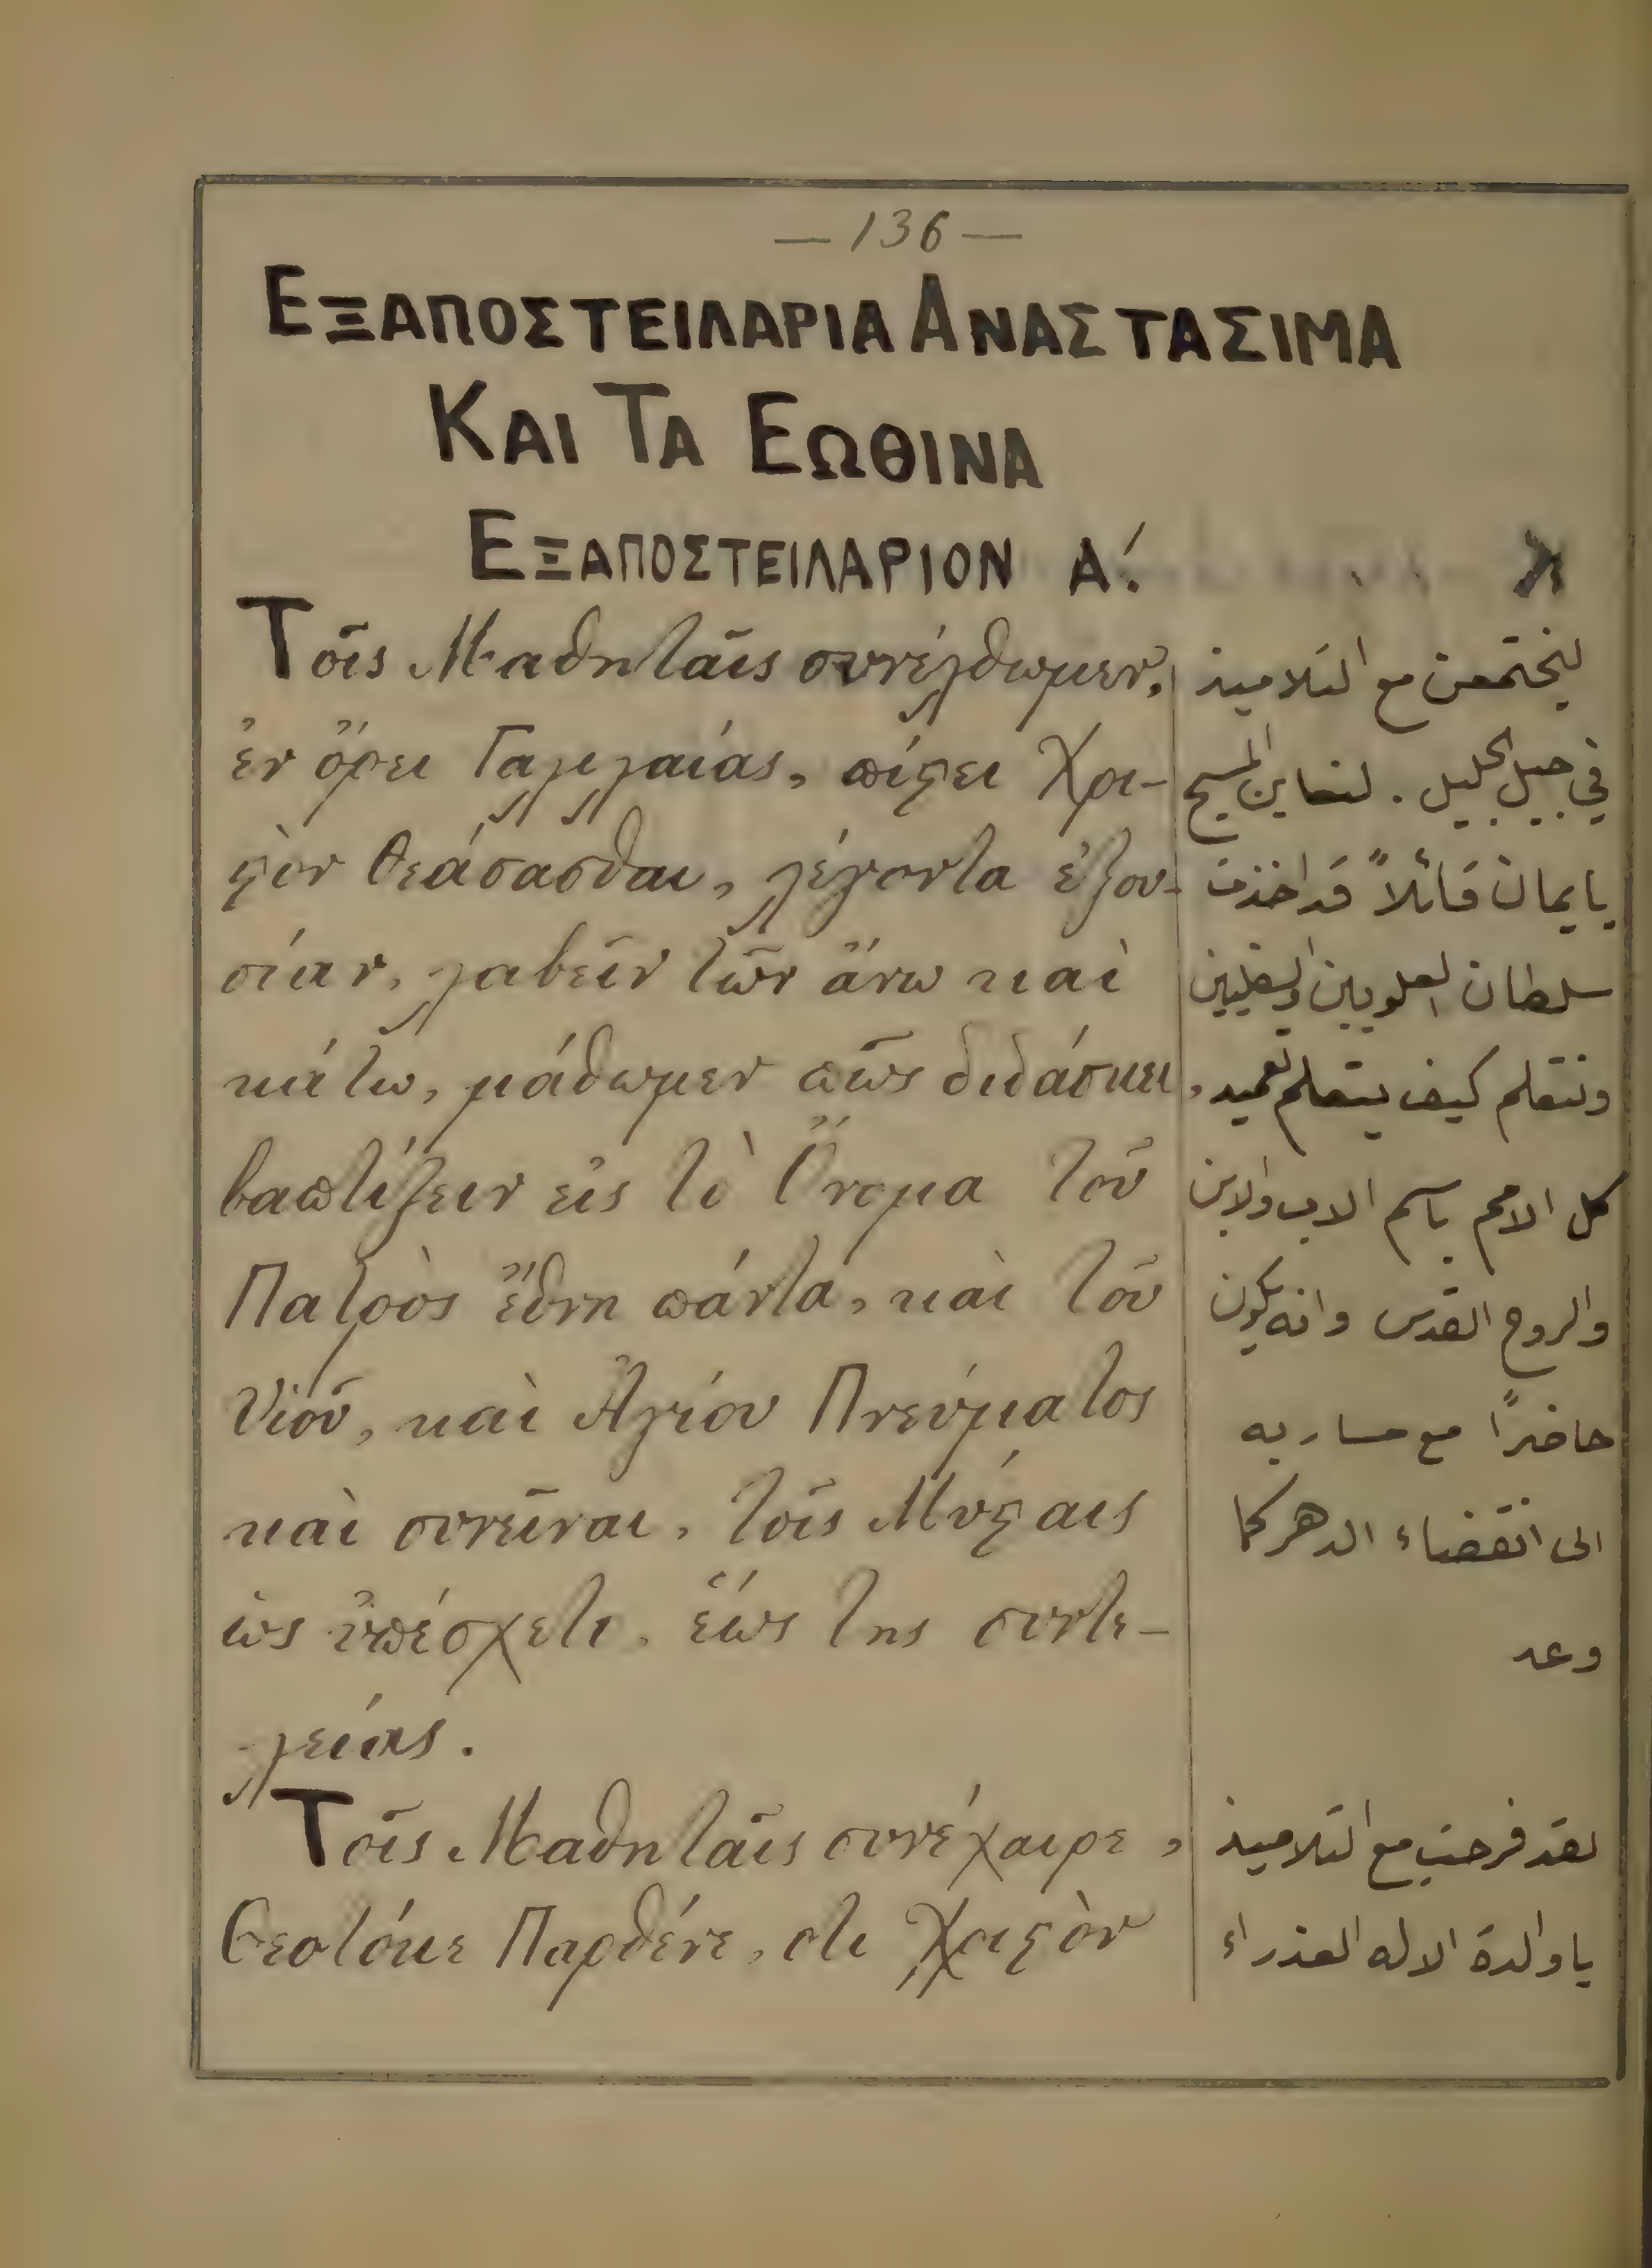 — 136 —
ΕΞΑΠΟΣΤΕΙΛΑΡΙΑ ΑΝΑΣΤΑΣΙΜΑ
ΚΑΙ ΤΑ ΕΩΘΙΝΑ
ΕΞΑΠΟΣΤΕΙΛΑΡΙΟΝ Α΄.
Τοῖς Μαθηταῖς συνέλθωμεν,
ἐν ὄρει Γαλιλαίας, πίϛει Χρι-
ϛὸν θεάσασθαι, λέγοντα ἐξου-
σίαν, λαβεῖν τῶν ἄνω καὶ
κάτω, μάθωμεν πῶς διδάσκει,
βαπτίζειν εἰς τὸ Ὄνομα τοῦ
Πατρὸς ἔθνη πάντα, καὶ τοῦ
Υἱοῦ, καὶ Ἁγίου Πνεύματος
καὶ συνεῖναι, τοῖς Μύϛαις
ὡς ὑπέσχετο, ἕως της συντε-
λείας.
Τοῖς Μαθηταῖς συνέχαιρε,
Θεοτόκε Παρθένε, οτι Χριϛὸν
لنجتمعن مع التلاميذ
في جبل الجليل. لنعاين المسيح
بايمان قائلاً قد اخذت
سلطان العلويين والسفليين
ونتعلم كيف يتعلم تعميد
كل الامم باسم الاب والابن
والروح القدس وانه يكون
حاضرًا مع مساريه
الى انقضاء الدهر كما
وعد
لقد فرحتِ مع التلاميذ
يا والدة الاله العذراء